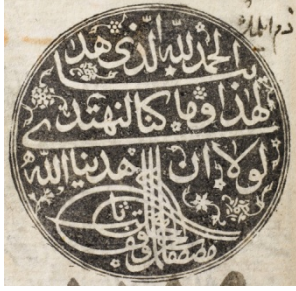 الحمد لله الذي هدينا
لهذا وما كنا لنهتدي
لولا ان هدينا الله
مصطفى